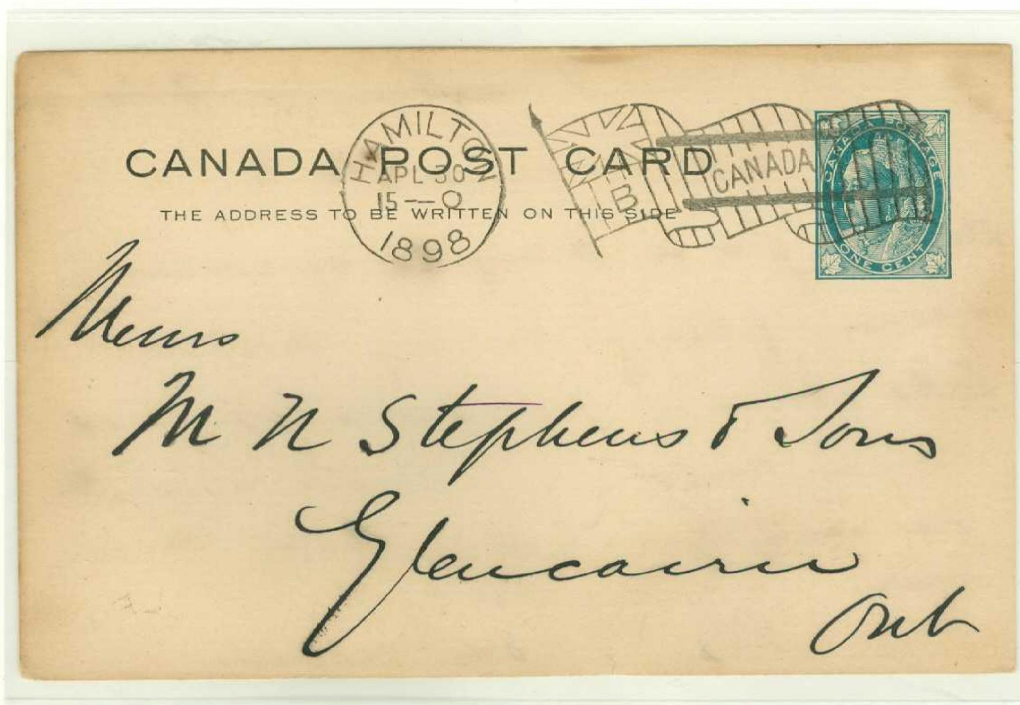 CANADA POST CARD
THE ADDRESS TO BE WRITTEN ON THIS SIDE
HAMILTON
APL 30
15—0
1898
CANADA
B
CANADA POSTAGE
ONE CENT
Messrs
M N Stephens & Sons
Glencairn
Ont